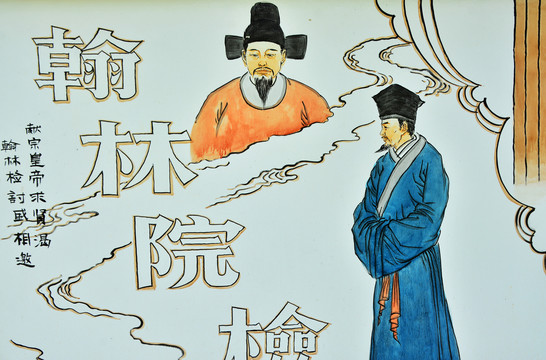 翰林院檢
献宗皇帝求賢渴
翰林检討或相邀